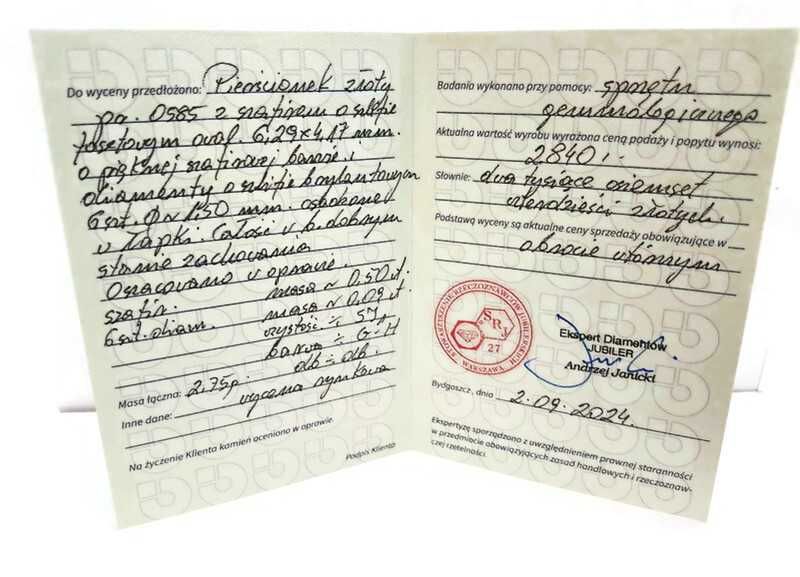 Do wyceny przedłożono: Pierścionek złoty
pr. 0585 z szafirem o szlifie
fasetowym owal. 6,29x4,17 mm.
o pięknej szafirowej barwie i
diamenty o szlifie brylantowym
6 szt. φ ~ 1,50 mm. osadzone
w łapki. Całość w b. dobrym
stanie zachowania
Oszacowano w oprawie
szafir. masa ~ 0,50 ct.
6 szt. diam. masa ~ 0,09 ct.
czystość ÷ SI1
barwa ÷ G-H
db ÷ db.
Masa łączna: 2,75g.
Inne dane: wycena rynkowa
Na życzenie Klienta kamień oceniono w oprawie.
Podpis Klienta
Badania wykonano przy pomocy: sprzętu
gemmologicznego
Aktualna wartość wyrobu wyrażona ceną podaży i popytu wynosi:
2840,-
Słownie: dwa tysiące osiemset
czterdzieści złotych.
Podstawą wyceny są aktualne ceny sprzedaży obowiązujące w
obrocie wtórnym
STOWARZYSZENIE RZECZOZNAWCÓW JUBILERSKICH
SRJ
27
WARSZAWA
Ekspert Diamentów
JUBILER
Andrzej Janicki
Bydgoszcz, dnia 2.09.2024.
Ekspertyzę sporządzono z uwzględnieniem prawnej staranności
w przedmiocie obowiązujących zasad handlowych i rzeczoznaw-
czej rzetelności.